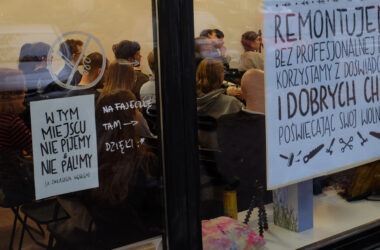 W TYM
MIEJSCU
NIE PIJEMY
I
NIE PALIMY
NA FAJECZKĘ
TAM →
DZIĘKI :*
REMONTUJE
BEZ PROFESJONALNEJ
KORZYSTAMY Z DOŚWIAD
I DOBRYCH CH
POŚWIĘCAJĄC SWÓJ WOLN